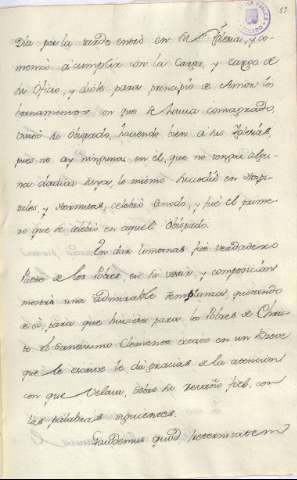 Dia por la tarde entró en su Iglesia, y co-
menzó a cumplir con la carga, y cargo de
su Oficio, y dióle para principio de Amor los
hornamentos con que se havia consagrado,
vistió de Obispado, haciendo bien a sus Iglesias,
pues no ay ninguna en el, que no tenga algu-
na dadiva suya, lo mismo en Hospi-
tales, y Hermitas, celebró Synodo, y fué el prime-
ro que se celebró en aquel Obispado.
En dar limosnas fué verdadero
Padre de los Pobres, en su vestir, y composicion
mostró una admirable templanza, quitando
de sí, para que huviese para los Pobres de Chris-
to el Santisimo Clemente octavo en un Breve
que le escrive le da gracias de la atencion
con que velava, sobre su revaño fiel, con
las palabras siguientes.
Gaudemus quod